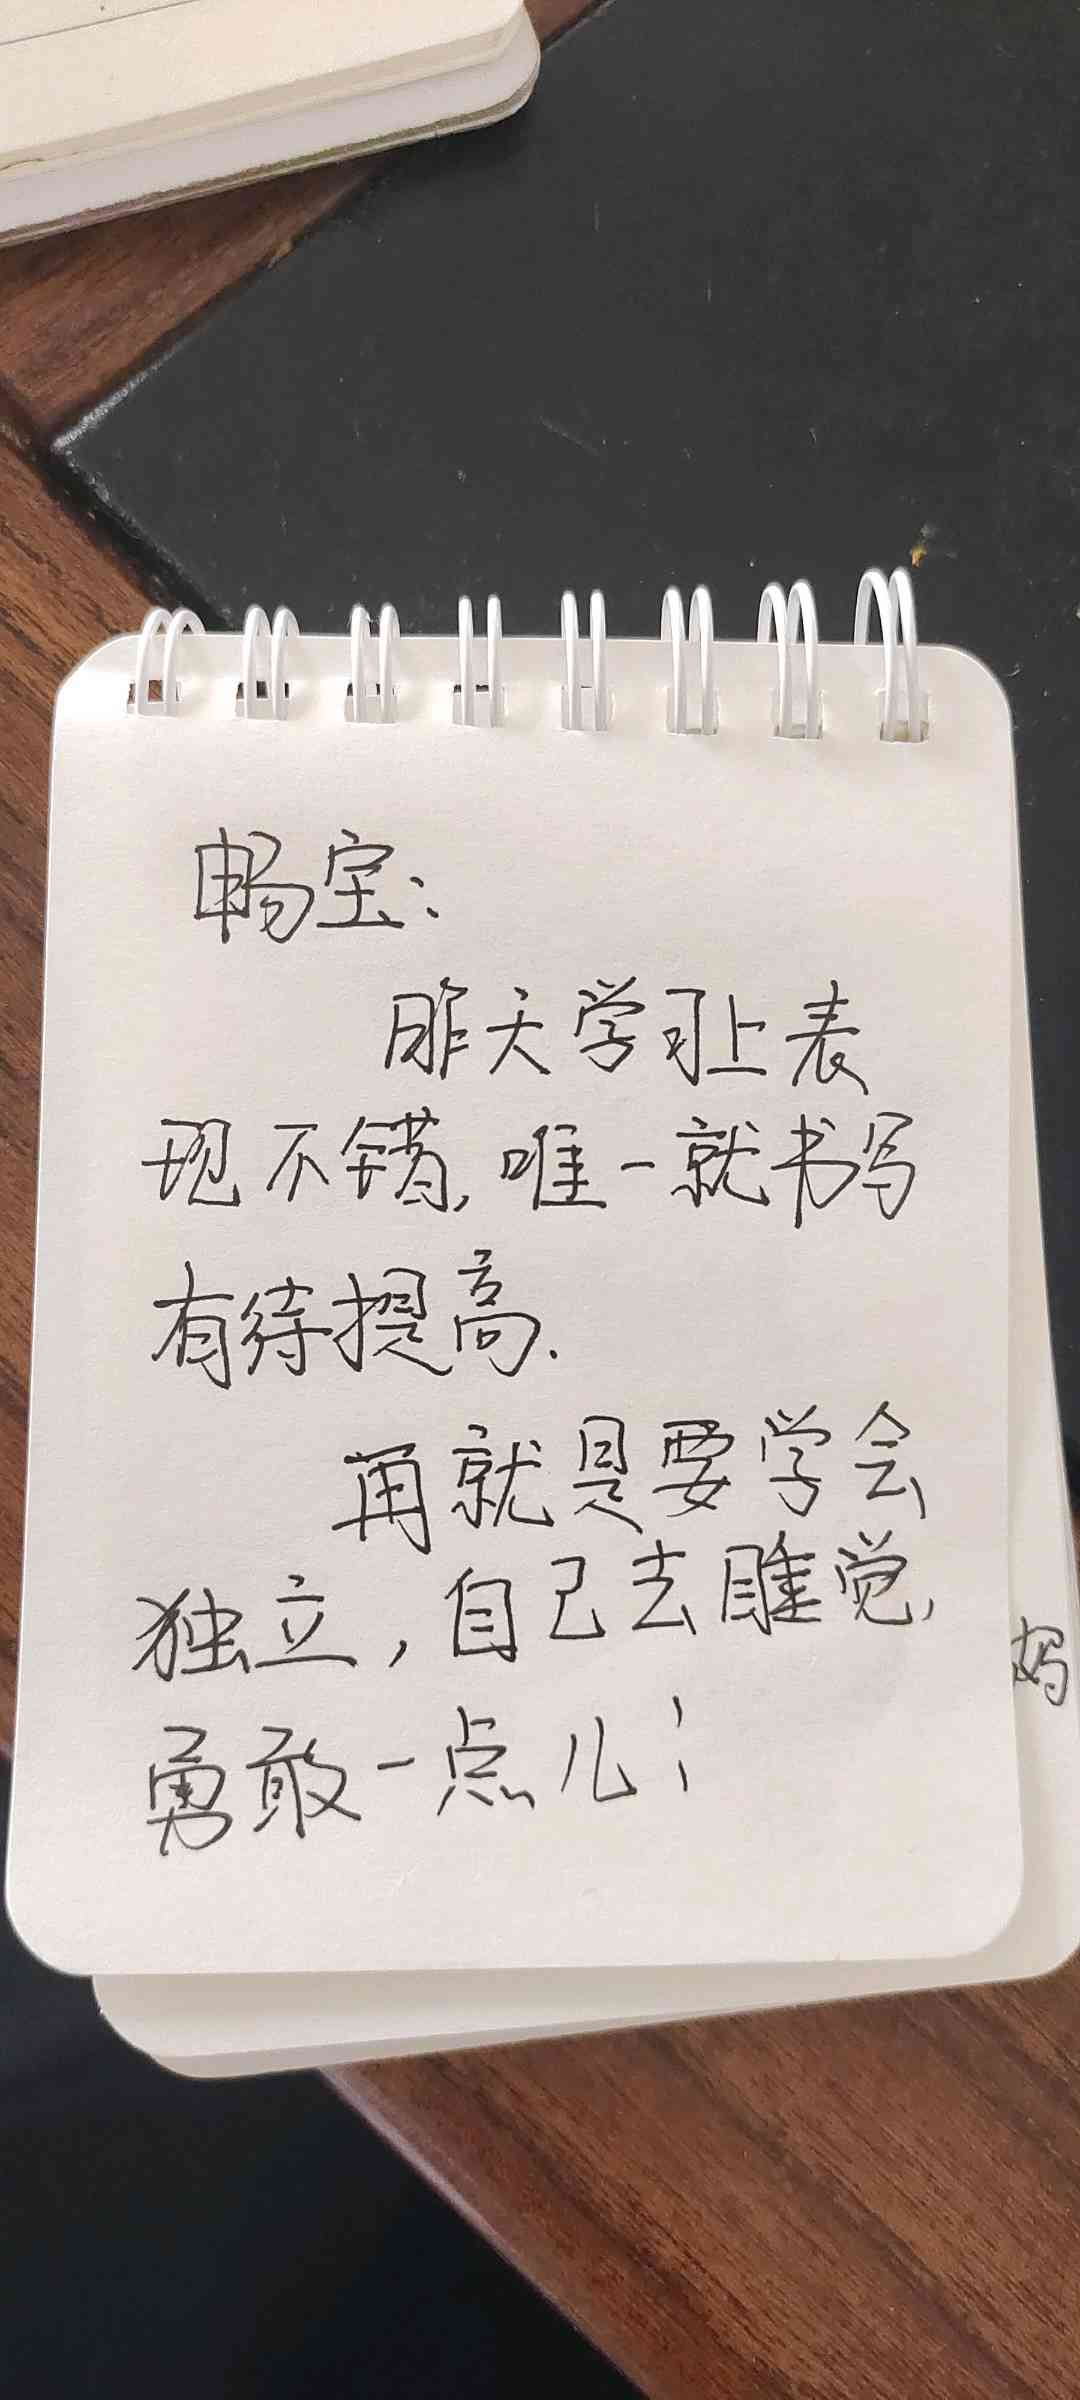 畅宝：
昨天学习上表
现不错，唯一就书写
有待提高.
再就是要学会
独立，自己去睡觉，
勇敢一点儿！
妈